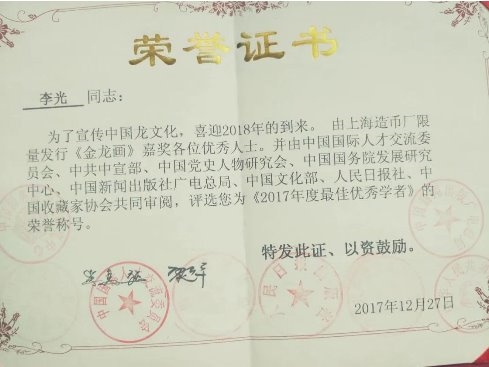 荣誉证书
李光 同志：
为了宣传中国龙文化，喜迎2018年的到来。 由上海造币厂限
量发行《金龙画》嘉奖各位优秀人士。并由中国国际人才交流委
员会、中共中宣部、中国党史人物研究会、中国国务院发展研究
中心、中国新闻出版社广电总局、中国文化部、人民日报社、中
国收藏家协会共同审阅，评选您为《2017年度最佳优秀学者》的
荣誉称号。
特发此证、以资鼓励。
2017年12月27日